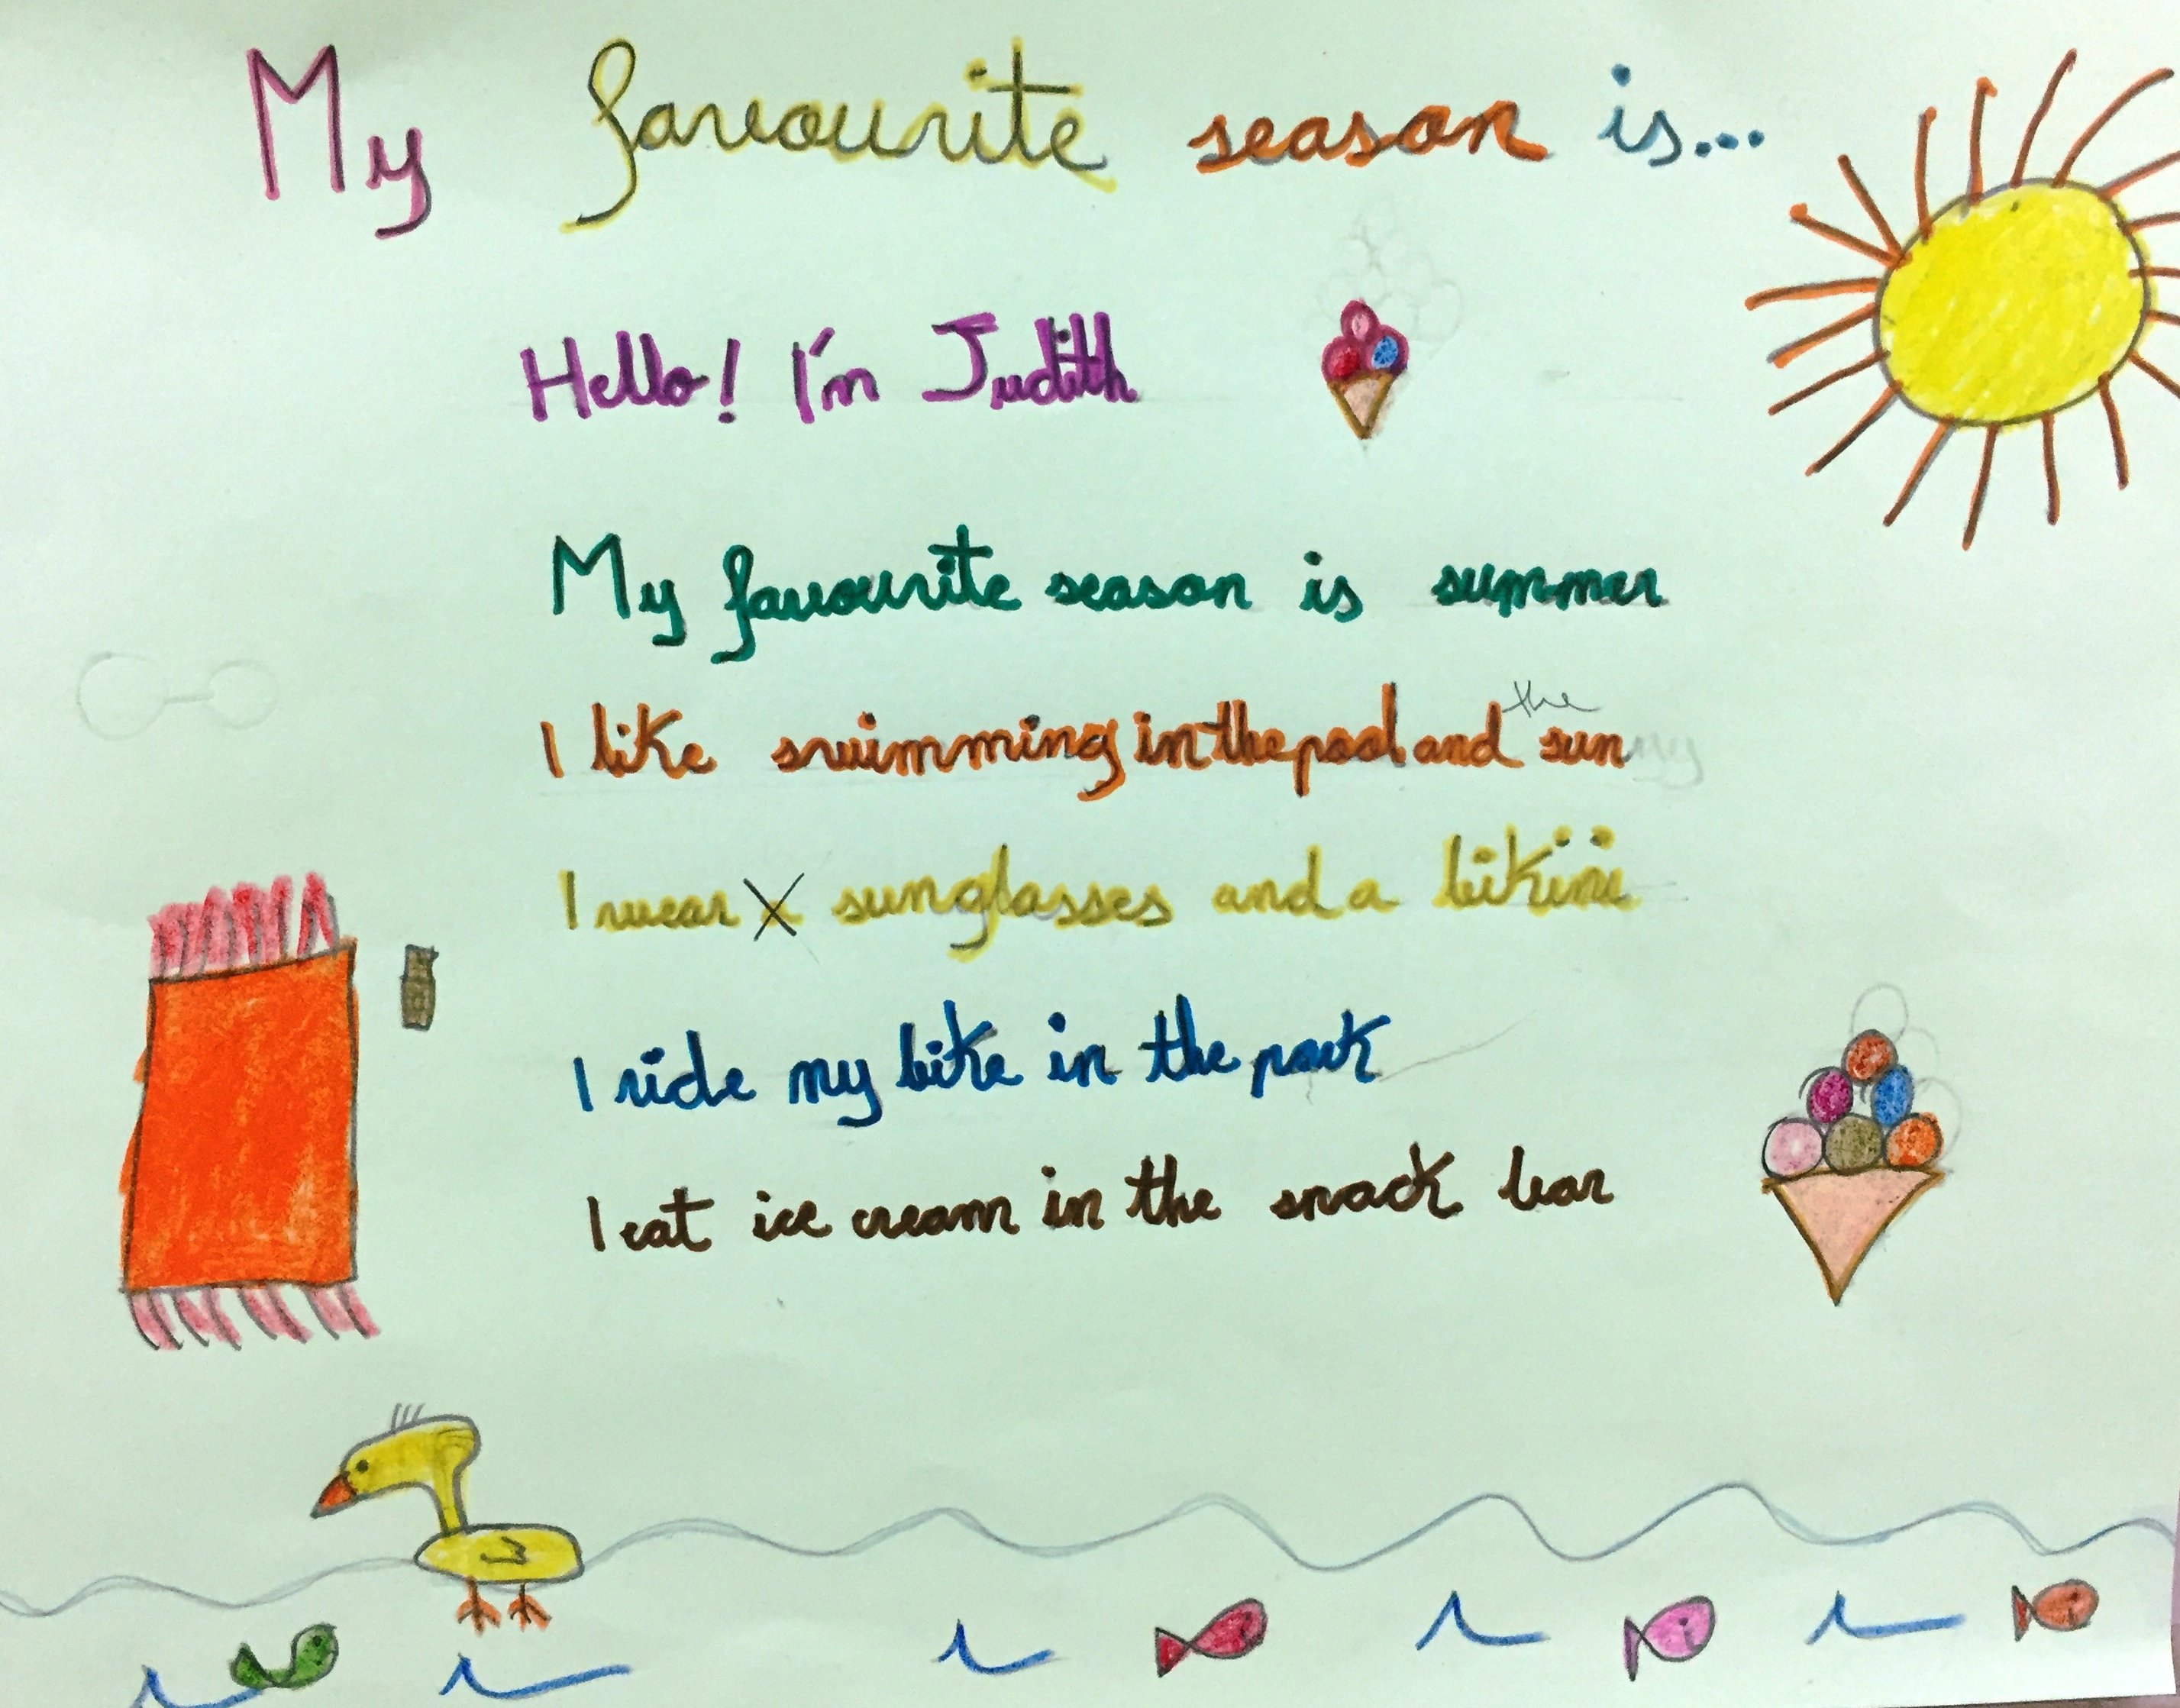 My favourite season is...
Hello! I'm Judith
My favourite season is summer
I like swimming in the pool and the sun
I wear a sunglasses and a bikini
I ride my bike in the park
I eat ice cream in the snack bar